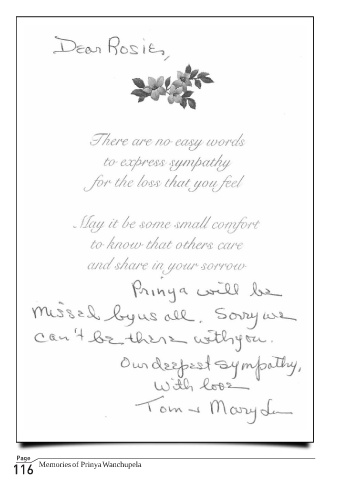 Dear Rosie,
There are no easy words
to express sympathy
for the loss that you feel
May it be some small comfort
to know that others care
and share in your sorrow
Prinya will be
missed by us all. Sorry we
can't be there with you.
Our deepest sympathy,
With love
Tom + Mary Lu
Page
116
Memories of Prinya Wanchupela